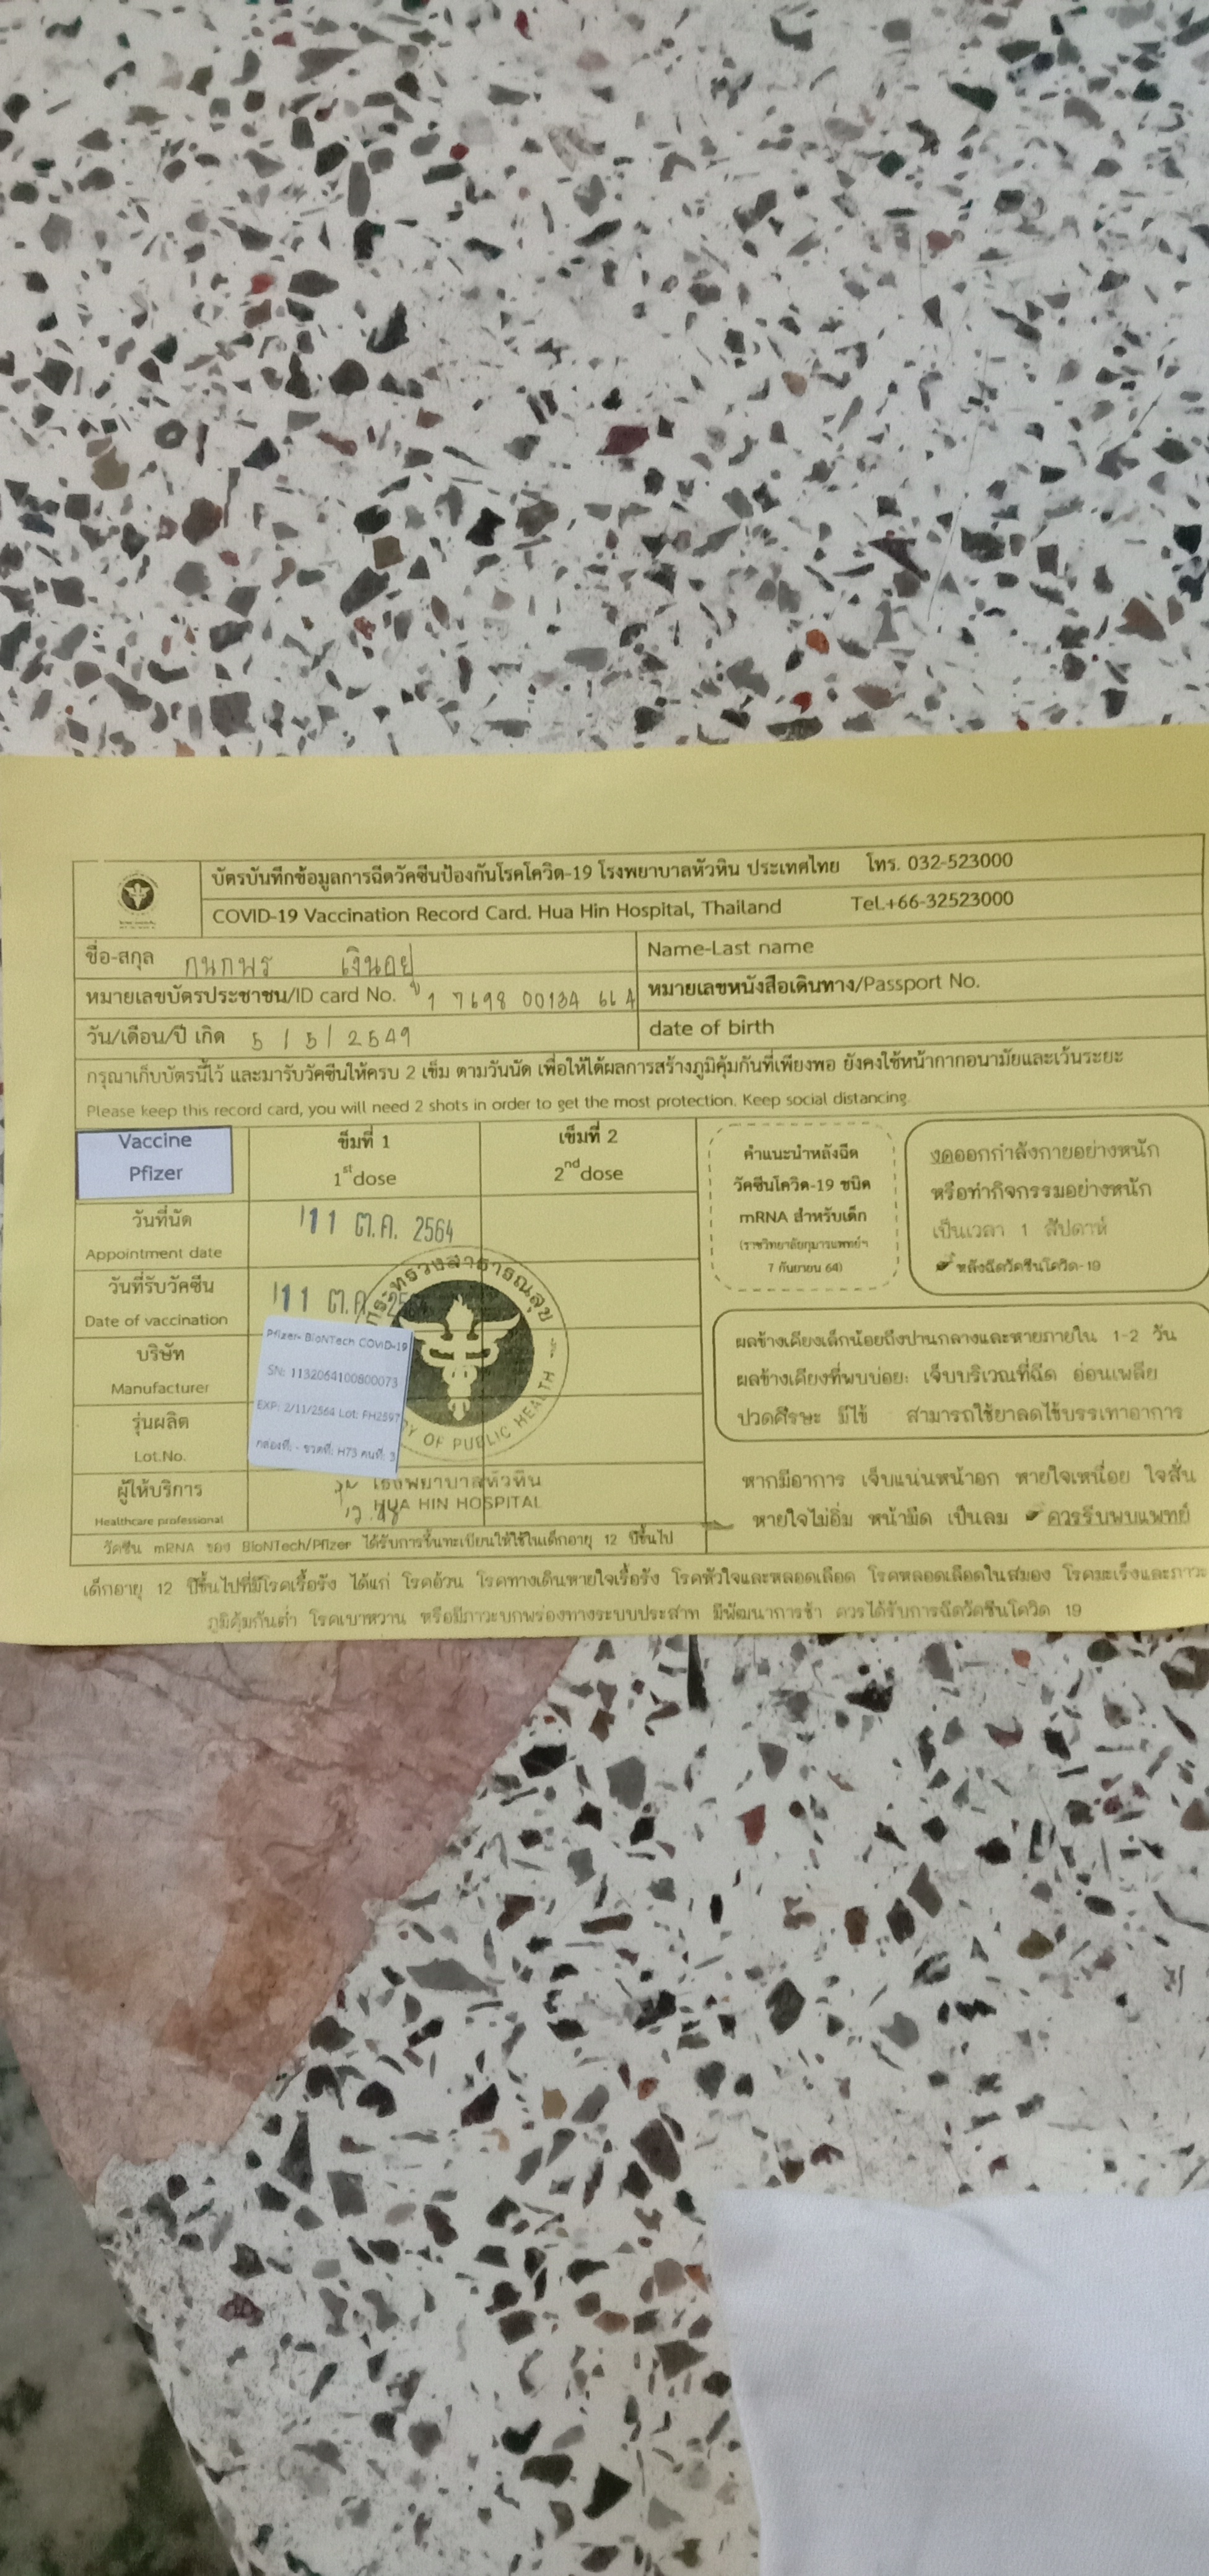 บัตรบันทึกข้อมูลการฉีดวัคซีนป้องกันโรคโควิด-19 โรงพยาบาลหัวหิน ประเทศไทย โทร. 032-523000
COVID-19 Vaccination Record Card. Hua Hin Hospital, Thailand Tel.+66-32523000
ชื่อ-สกุล กนกพร เงินอยู่ Name-Last name
หมายเลขบัตรประชาชน/ID card No. 1 7698 00134 66 4 หมายเลขหนังสือเดินทาง/Passport No.
วัน/เดือน/ปี เกิด 5 / 5 / 2549 date of birth
กรุณาเก็บบัตรนี้ไว้ และมารับวัคซีนให้ครบ 2 เข็ม ตามวันนัด เพื่อให้ได้ผลการสร้างภูมิคุ้มกันที่เพียงพอ ยังคงใช้หน้ากากอนามัยและเว้นระยะ
Please keep this record card, you will need 2 shots in order to get the most protection. Keep social distancing.
Vaccine
Pfizer
ข็มที่ 1
1st dose
เข็มที่ 2
2nd dose
วันที่นัด
Appointment date
11 ต.ค. 2564
วันที่รับวัคซีน
Date of vaccination
11 ต.ค. 2564
บริษัท
Manufacturer
รุ่นผลิต
Lot.No.
Pfizer- BioNTech COVID-19
SN: 1132064100800073
EXP: 2/11/2564 Lot: FH2597
กล่องที่: - ขวดที่: H73 คนที่: 3
กระทรวงสาธารณสุข
OF PUBLIC HEALTH
ผู้ให้บริการ
Healthcare professional
โรงพยาบาลหัวหิน
HUA HIN HOSPITAL
วัคซีน mRNA ของ BioNTech/Pfizer ได้รับการขึ้นทะเบียนให้ใช้ในเด็กอายุ 12 ปีขึ้นไป
คำแนะนำหลังฉีด
วัคซีนโควิด-19 ชนิด
mRNA สำหรับเด็ก
(ราชวิทยาลัยกุมารแพทย์ฯ
7 กันยายน 64)
งดออกกำลังกายอย่างหนัก
หรือทำกิจกรรมอย่างหนัก
เป็นเวลา 1 สัปดาห์
หลังฉีดวัคซีนโควิด-19
ผลข้างเคียงเล็กน้อยถึงปานกลางและหายภายใน 1-2 วัน
ผลข้างเคียงที่พบบ่อย: เจ็บบริเวณที่ฉีด อ่อนเพลีย
ปวดศีรษะ มีไข้ สามารถใช้ยาลดไข้บรรเทาอาการ
หากมีอาการ เจ็บแน่นหน้าอก หายใจเหนื่อย ใจสั่น
หายใจไม่อิ่ม หน้ามืด เป็นลม ควรรีบพบแพทย์
เด็กอายุ 12 ปีขึ้นไปที่มีโรคเรื้อรัง ได้แก่ โรคอ้วน โรคทางเดินหายใจเรื้อรัง โรคหัวใจและหลอดเลือด โรคหลอดเลือดในสมอง โรคมะเร็งและภาวะ
ภูมิคุ้มกันต่ำ โรคเบาหวาน หรือมีภาวะบกพร่องทางระบบประสาท มีพัฒนาการช้า ควรได้รับการฉีดวัคซีนโควิด 19